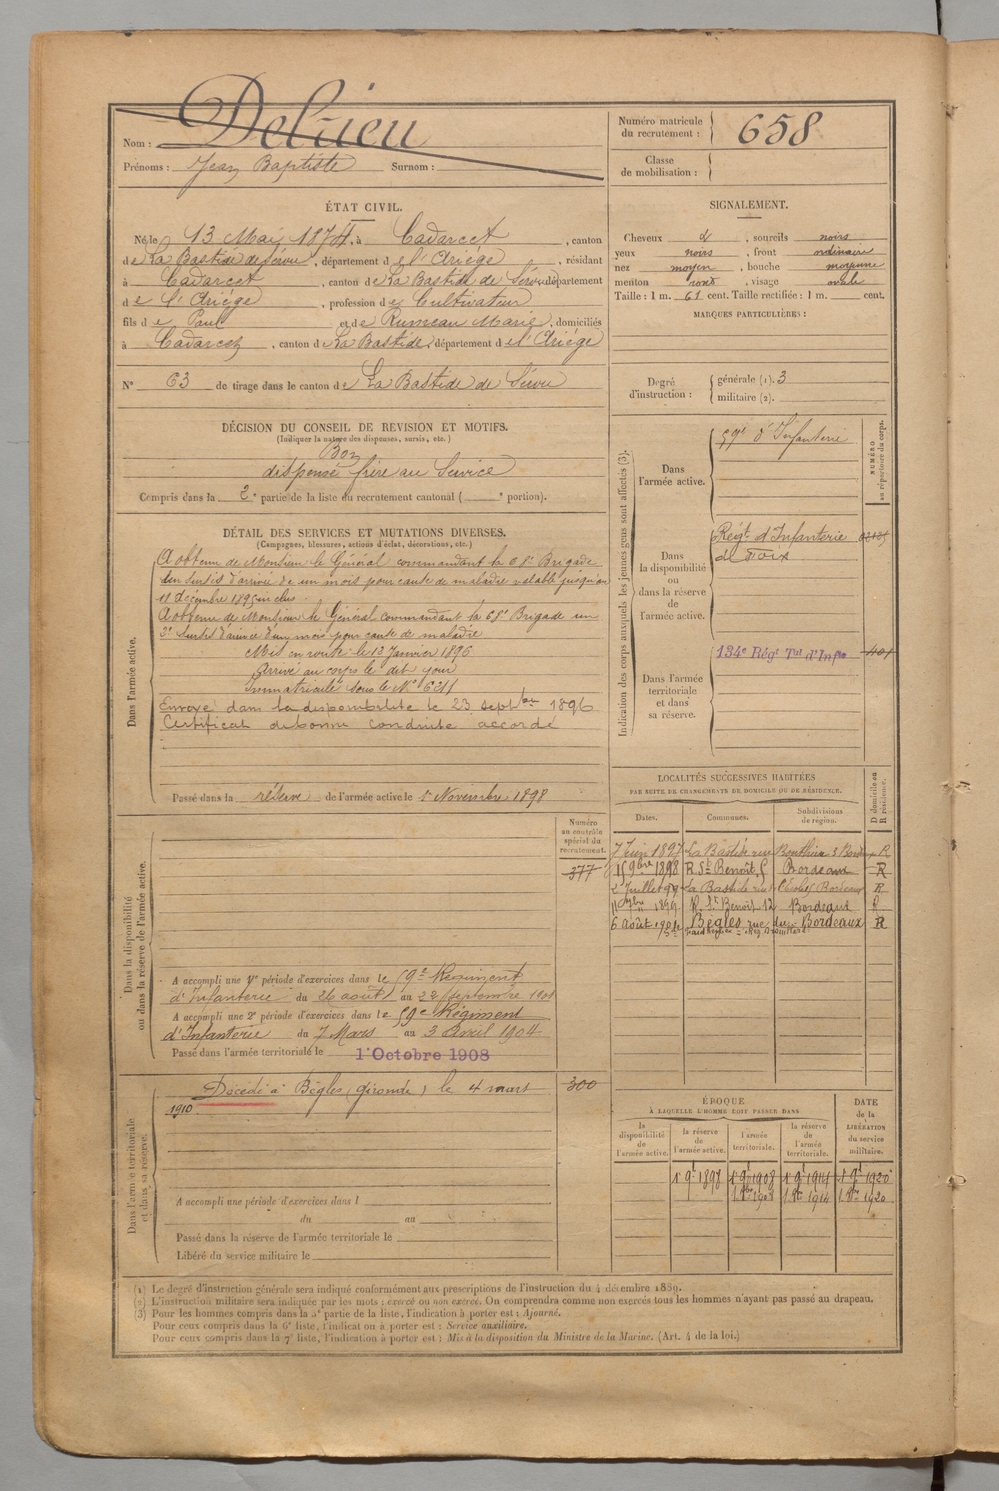 Nom : Delrieu
Prénoms : Jean Baptiste Surnom :
Numéro matricule du recrutement : 658
Classe de mobilisation :
ÉTAT CIVIL.
Né le 13 Mai 1874, à Cadarcet, canton
de La Bastide de Sérou, département de l'Ariège, résidant
à Cadarcet, canton de La Bastide de Sérou département
de l'Ariège, profession de Cultivateur
fils de Paul et de Rumeau Marie, domiciliés
à Cadarcet, canton de La Bastide, département de l'Ariège
N° 63 de tirage dans le canton de La Bastide de Sérou
SIGNALEMENT.
Cheveux d, sourcils noirs
yeux noirs, front ordinaire
nez moyen, bouche moyenne
menton rond, visage ovale
Taille : 1 m. 61 cent. Taille rectifiée : 1 m. cent.
MARQUES PARTICULIÈRES :
Degré d'instruction : générale (1). 3
militaire (2).
DÉCISION DU CONSEIL DE REVISION ET MOTIFS.
(Indiquer la nature des dispenses, sursis, etc.)
Bon
dispensé frère au Service
Compris dans la 2e partie de la liste du recrutement cantonal ( e portion).
DÉTAIL DES SERVICES ET MUTATIONS DIVERSES.
(Campagnes, blessures, actions d'éclat, décorations, etc.)
Dans l'armée active.
A obtenu de Monsieur le Général commandant la 68e Brigade
un sursis d'arrivée de un mois pour cause de maladie valable jusqu'au
11 décembre 1895 inclus.
A obtenu de Monsieur le Général commandant la 68e Brigade un
2e sursis d'arrivée d'un mois pour cause de maladie
Mis en route le 13 Janvier 1896
Arrivé au corps le dit jour
Immatriculé sous le N°
Envoyé dans la disponibilité le 23 septbre 1896
Certificat de bonne conduite accordé
Passé dans la réserve de l'armée active le 1er Novembre 1898
Indication des corps auxquels les jeunes gens sont affectés (3).
NUMÉRO au répertoire du corps.
Dans l'armée active.
59e d'Infanterie
Dans la disponibilité ou dans la réserve de l'armée active.
Régt d'Infanterie
de Foix
Dans l'armée territoriale et dans sa réserve.
134e Régt Tal d'Infie
LOCALITÉS SUCCESSIVES HABITÉES
PAR SUITE DE CHANGEMENTS DE DOMICILE OU DE RÉSIDENCE.
Dates. Communes. Subdivisions de région. D domicile ou R résidence.
7 Juin 1897 La Bastide rue Bouthier 3 Bordeaux R
15 9bre 1898 R. St Benoît 5 Bordeaux R
2 Juillet 99 La Bastide rue Bordeaux R
11 9bre 1899 R. St Benoît 12 Bordeaux R
6 août 1904 Bègles rue du Bordeaux R
Dans la disponibilité ou dans la réserve de l'armée active.
Numéro au contrôle spécial du recrutement.
377
A accompli une 1re période d'exercices dans le 59e Régiment
d'Infanterie du 26 août au 22 Septembre 1901
A accompli une 2e période d'exercices dans le 59e Régiment
d'Infanterie du 7 Mars au 3 Avril 1904
Passé dans l'armée territoriale le 1er Octobre 1908
Dans l'armée territoriale et dans sa réserve.
Décédé à Bègles (Gironde) le 4 mars 300
1910
A accompli une période d'exercices dans l
du au
Passé dans la réserve de l'armée territoriale le
Libéré du service militaire le
ÉPOQUE
À LAQUELLE L'HOMME DOIT PASSER DANS
DATE de la LIBÉRATION du service militaire.
la disponibilité de l'armée active. la réserve de l'armée active. l'armée territoriale. la réserve de l'armée territoriale.
1er 9e 1898 1er 9e 1908 1er 9e 1914 1er 9e 1920
1 8bre 1908 1 8bre 1914 1 8bre 1920
(1) Le degré d'instruction générale sera indiqué conformément aux prescriptions de l'instruction du 4 décembre 1889.
(2) L'instruction militaire sera indiquée par les mots : exercé ou non exercé. On comprendra comme non exercés tous les hommes n'ayant pas passé au drapeau.
(3) Pour les hommes compris dans la 5e partie de la liste, l'indication à porter est : Ajourné.
Pour ceux compris dans la 6e liste, l'indication à porter est : Service auxiliaire.
Pour ceux compris dans la 7e liste, l'indication à porter est : Mis à la disposition du Ministre de la Marine. (Art. 4 de la loi.)